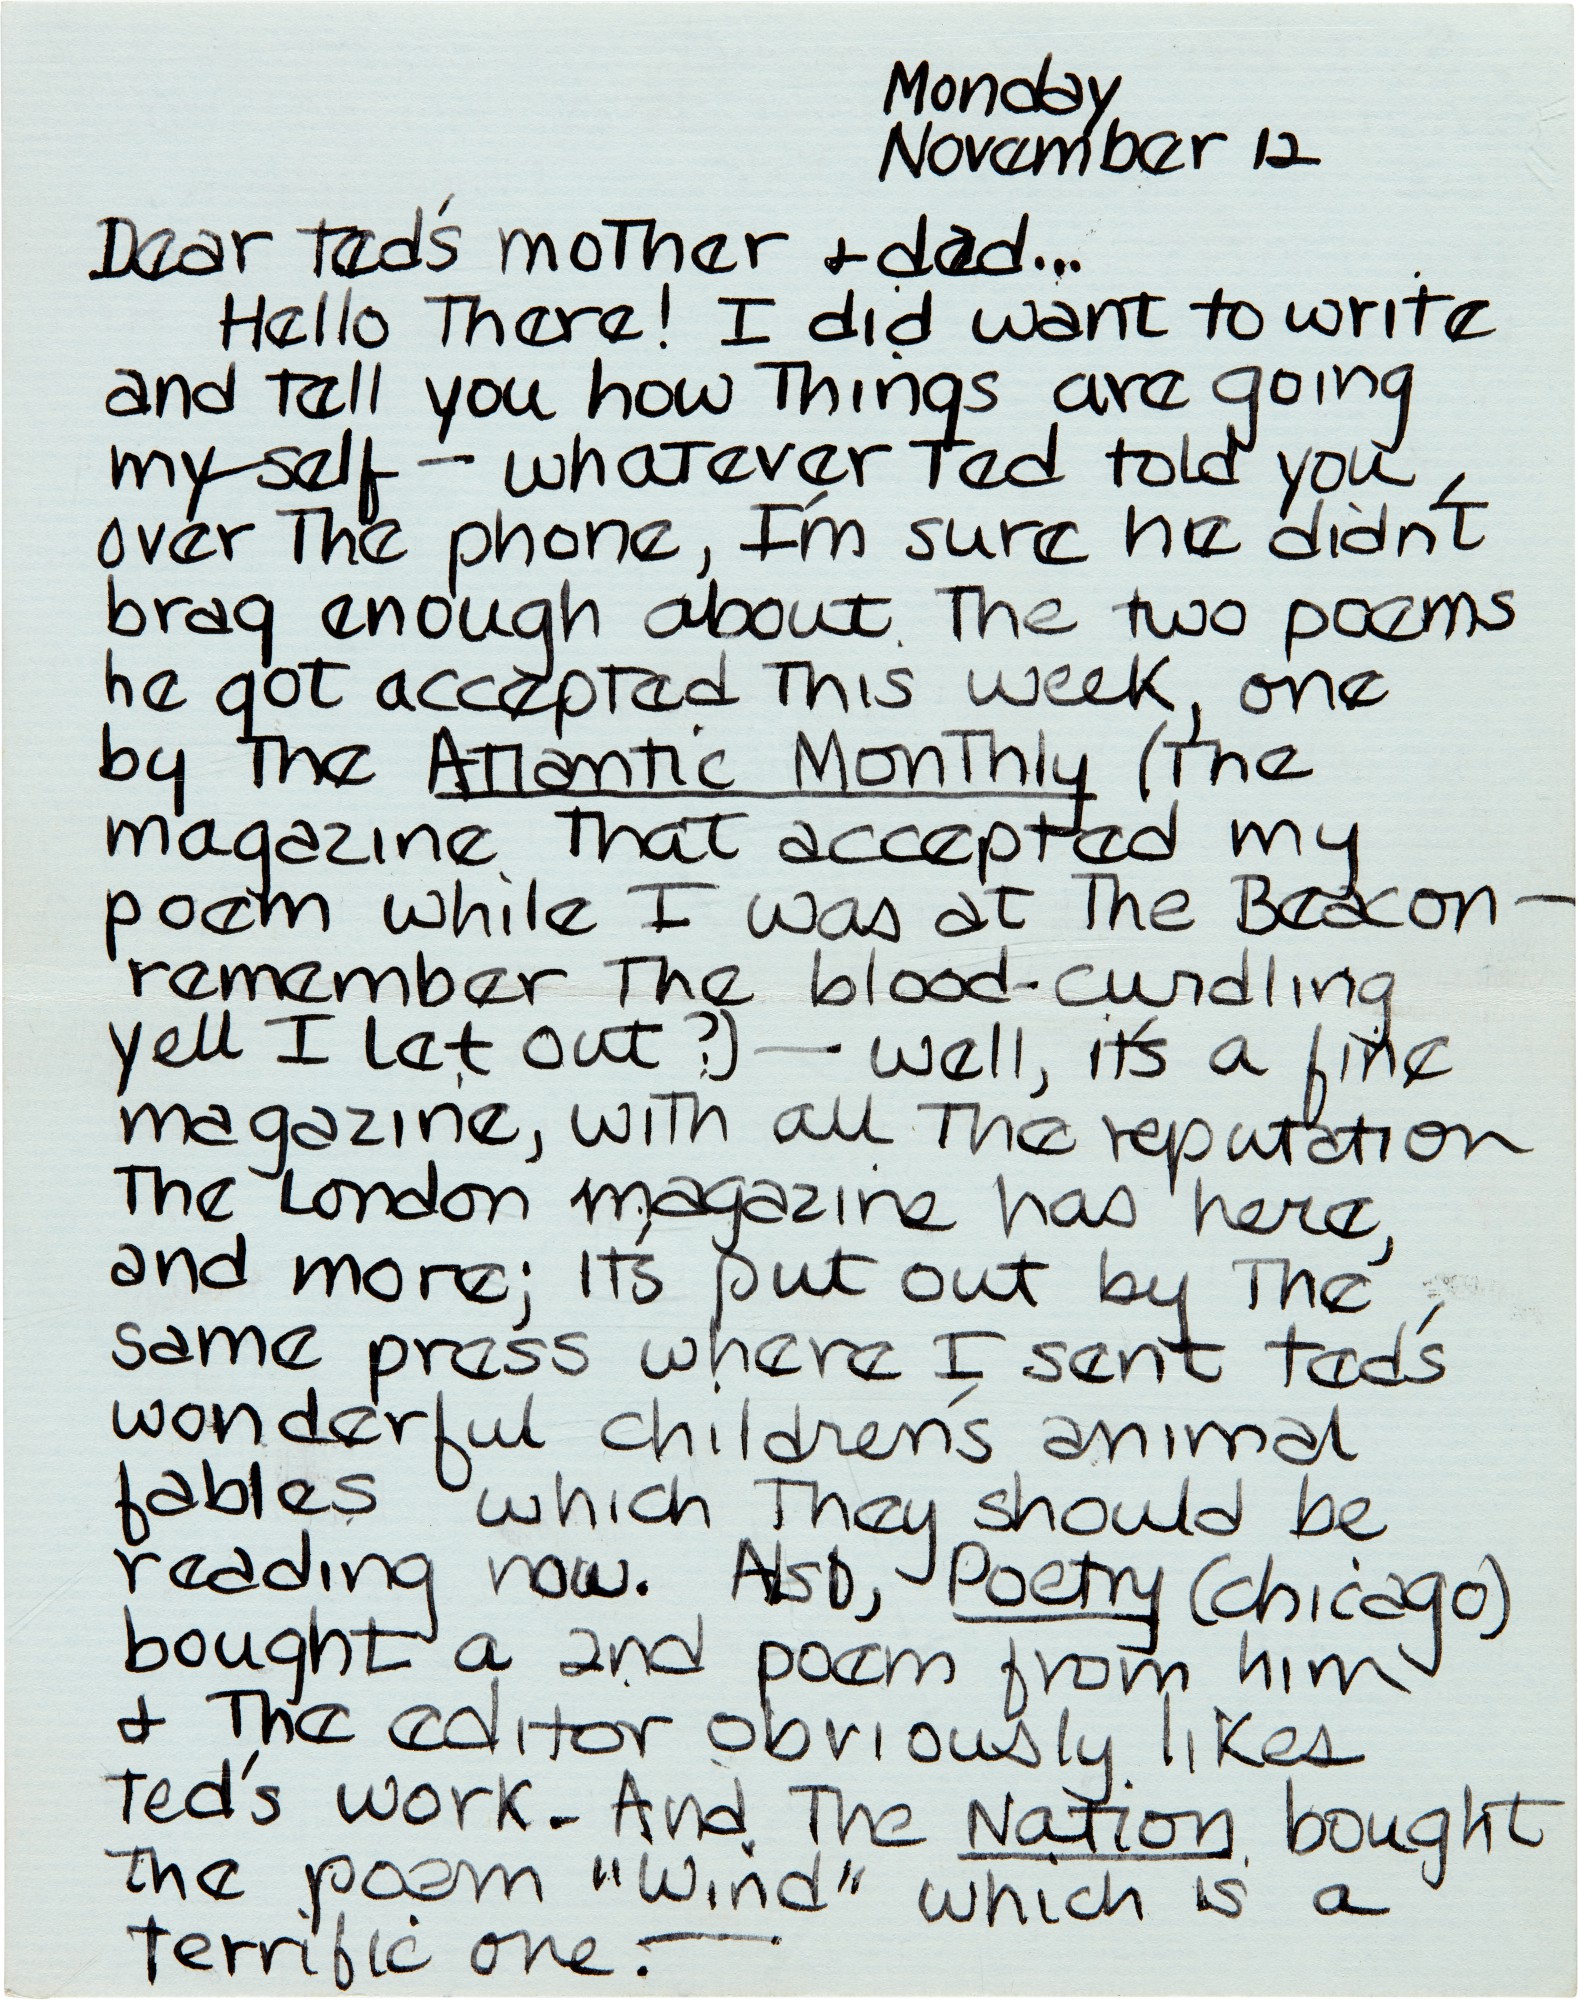 Monday
November 12
Dear Ted's mother & dad...
Hello there! I did want to write
and tell you how things are going
myself — whatever Ted told you
over the phone, I'm sure he didn't
brag enough about the two poems
he got accepted this week, one
by the Atlantic Monthly (the
magazine that accepted my
poem while I was at the Beacon —
remember the blood-curdling
yell I let out?) — well, it's a fine
magazine, with all the reputation
the London magazine has here,
and more; it's put out by the
same press where I sent Ted's
wonderful children's animal
fables which they should be
reading now. Also, Poetry (Chicago)
bought a 2nd poem from him
& the editor obviously likes
Ted's work. And the Nation bought
the poem "Wind" which is a
terrific one. —